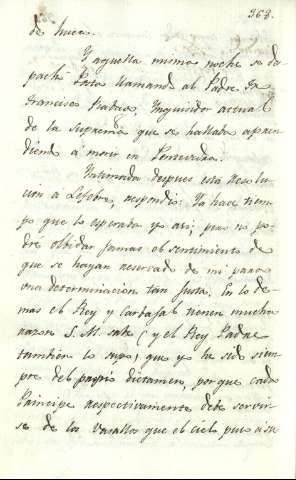 363.
de hueca.
Y aquella misma noche se des
pachó Posta llamando al Padre Fr.
Francisco Rabaco, Inquisidor actual
de la Suprema que se hallaba apren
diendo á morir en Pontevedra.
Intimada despues esta Resolu
ción a Lefebre, respondió: Ya hace tiem
po que lo esperaba yo asi; pero no po
dre olbidar jamas el sentimiento de
que se hayan acordado de mi para
una determinacion tan justa. En lo de
mas el Rey y Carbajal tienen mucha
razon S. M. sabe (y el Rey Padre
tambien lo supo) que yo he sido siem
pre del propio dictamen, porque cada
Principe respectivamente debe servir
se de los vasallos que el cielo puso a su